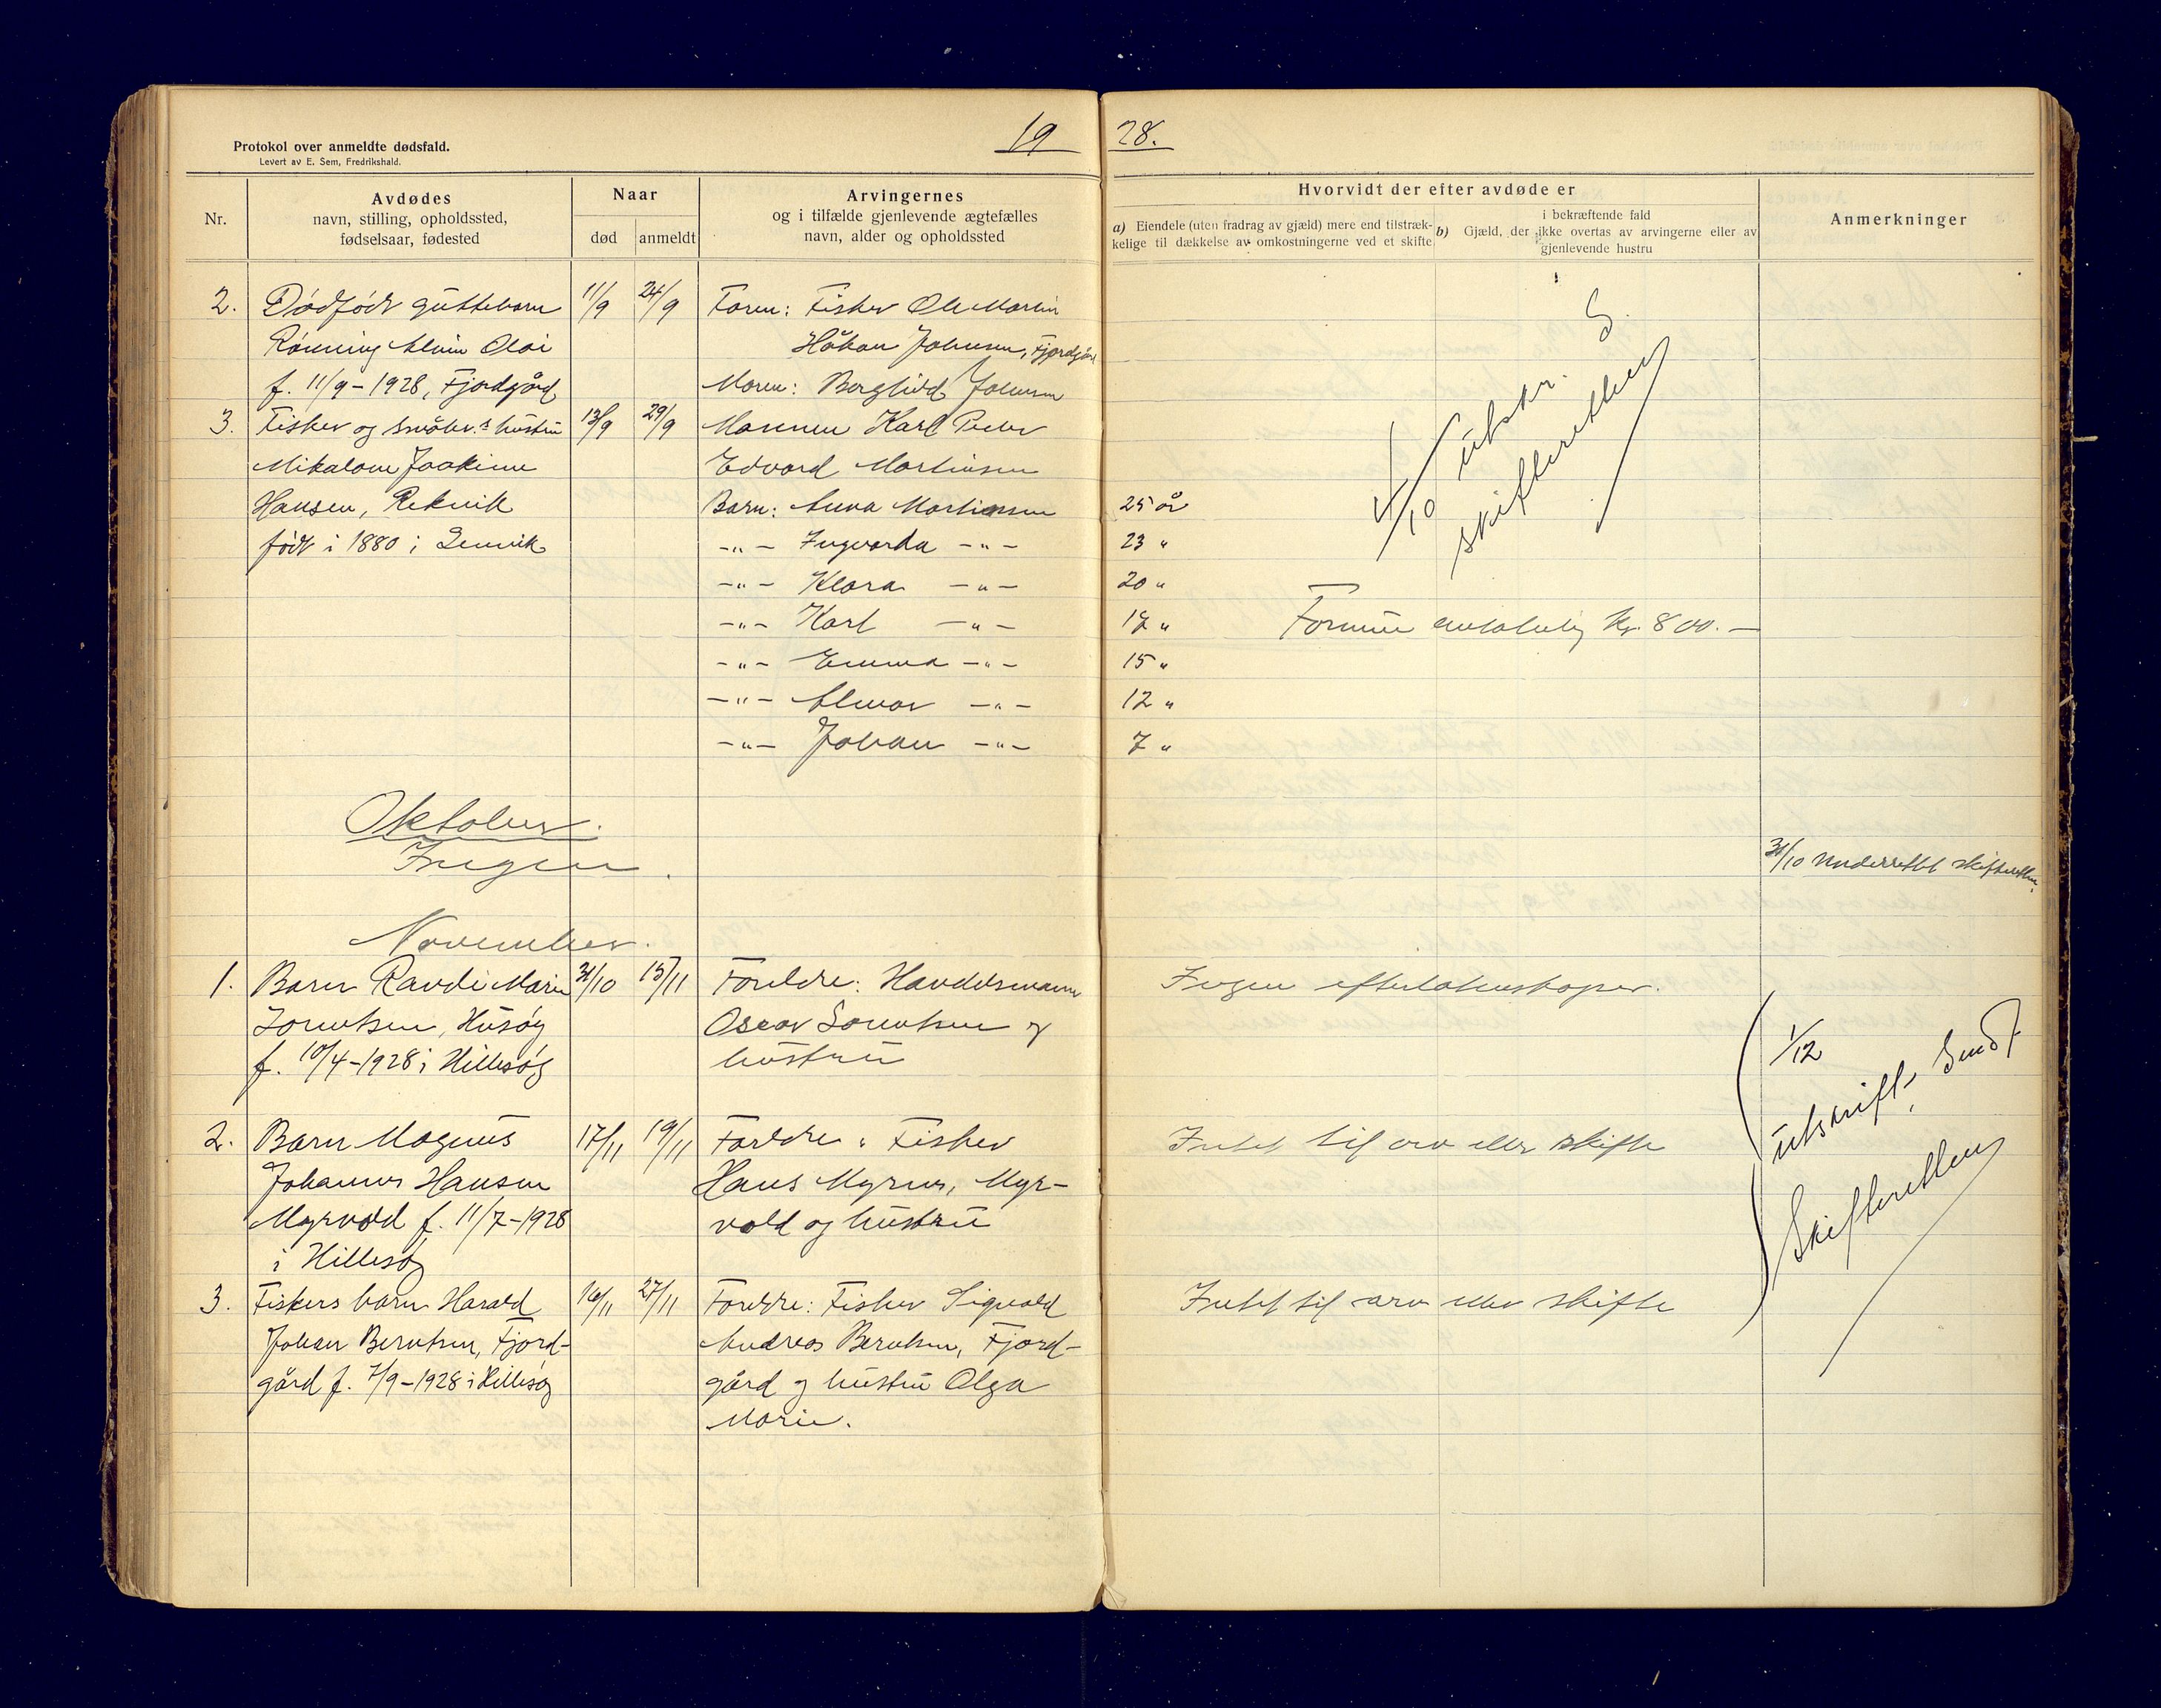 19 28.
Protokol over anmeldte dødsfald.
Levert av E. Sem, Fredrikshald.
Nr.
Avdødes
navn, stilling, opholdssted,
fødselsaar, fødested
Naar
død anmeldt
Arvingernes
og i tilfælde gjenlevende ægtefælles
navn, alder og opholdssted
Hvorvidt der efter avdøde er
a) Eiendele (uten fradrag av gjæld) mere end tilstræk-
kelige til dækkelse av omkostningerne ved et skifte
i bekræftende fald
b) Gjæld, der ikke overtas av arvingerne eller av
gjenlevende hustru
Anmerkninger
2. Dødfødt guttebarn 11/9 24/9 Faren: Fisker Ole Martin
Rønning Alvin Olai Håkon Johnsen, Fjordgård
f. 11/9-1928, Fjordgård Moren: Bergliot Johnsen
4/10 utskr. S.
skifteretten
3. Fisker og småbr.s hustru 13/9 29/9 Mannen Karl Peder
Mikalone Joakime Edvard Martinsen
Hansen, Rekvik Barn: Anna Martinsen 25 år
født i 1880 i Lenvik -"- Ingvarda -"- 23 "
-"- Klara -"- 20 "
-"- Karl -"- 17 " Formue antakelig kr. 800.-
-"- Emma -"- 15 "
-"- Almar -"- 12 "
-"- Johan -"- 7 "
Oktober.
Ingen.
31/10 Underrettet skifteretten.
November.
1. Barn Randi Marie 31/10 15/11 Foreldre: Handelsmann Ingen efterlatenskaper.
Lorentsen, Husøy Oscar Lorentsen og
f. 10/4-1928 i Hillesøy hustru
2. Barn Magnus 17/11 19/11 Foreldre: Fisker Intet til arv eller skifte
Johannes Hansen Hans Myrnes, Myr-
Myrvold f. 11/7-1928 vold og hustru
i Hillesøy
1/12
utskrift Sendt
Skifteretten
3. Fiskers barn Harald 16/11 27/11 Foreldre: Fisker Sigvald Intet til arv eller skifte
Johan Berntsen, Fjord- Andreas Berntsen, Fjord-
gård f. 7/9-1928 i Hillesøy gård og hustru Olga
Marie.